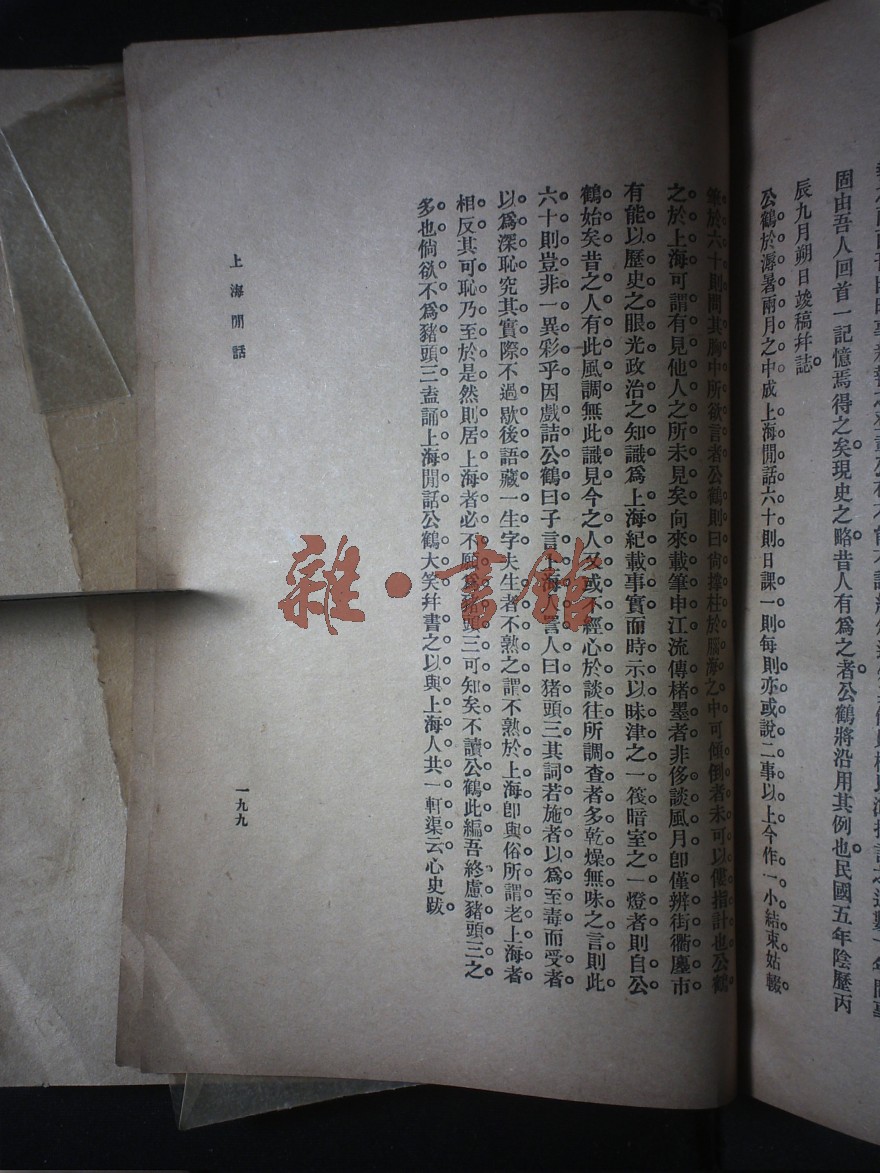 固由吾人回首一記憶焉得之矣現史之略昔人有爲之者公鶴將沿用其例也民國五年陰歷丙
辰九月朔日竣稿幷誌
公鶴於溽暑兩月之中成上海閒話六十則日課一則每則亦或說二事以上今作一小結束姑輟
筆於六十則間其胸中所欲言者公鶴則曰尙撐柱於腦海之中可傾倒者未可以僂指計也公鶴
之於上海可謂有見他人之所未見矣向來載筆申江流傳楮墨者非侈談風月卽僅辨街衢廛市
有能以歷史之眼光政治之知識爲上海紀載事實而時示以昧津之一筏暗室之一燈者則自公
鶴始矣昔之人有此風調無此識見今之人又或不經心於談往所調查者多乾燥無味之言則此
六十則豈非一異彩乎因戲詰公鶴曰子言上海人詈人曰猪頭三其詞若施者以爲至毒而受者
以爲深恥究其實際不過歇後語藏一生字夫生者不熟之謂不熟於上海卽與俗所謂老上海者
相反其可恥乃至於是然則居上海者必不願爲豬頭三可知矣不讀公鶴此編吾終慮豬頭三之
多也倘欲不爲豬頭三盍誦上海閒話公鶴大笑幷書之以與上海人共一軒渠云心史跋
上海閒話
一九九
雜·書館